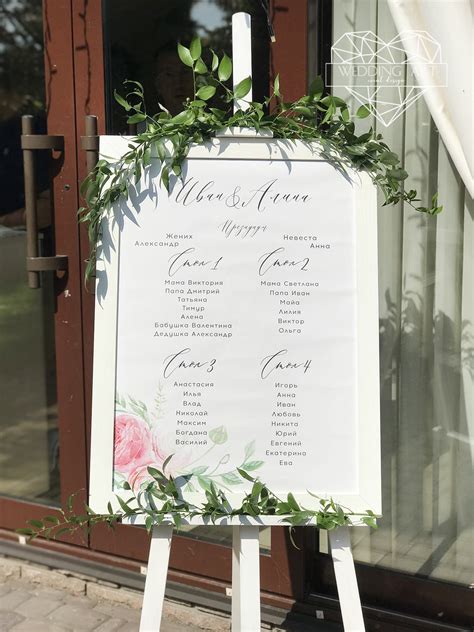 WEDDING ART
event design
Иван & Алина
Президиум
Жених
Александр
Невеста
Анна
Стол 1
Мама Виктория
Папа Дмитрий
Татьяна
Тимур
Алена
Бабушка Валентина
Дедушка Александр
Стол 2
Мама Светлана
Папа Иван
Майа
Лилия
Виктор
Ольга
Стол 3
Анастасия
Илья
Влад
Николай
Максим
Богдана
Василий
Стол 4
Игорь
Анна
Иван
Любовь
Никита
Юрий
Евгений
Екатерина
Ева